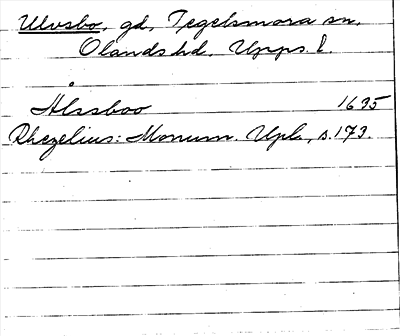 Ulvsbo, gd, Tegelsmora sn,
Olands hd. Upps. l
Ålssboo 1635
Rhezelius: Monum. Upl., s. 173.